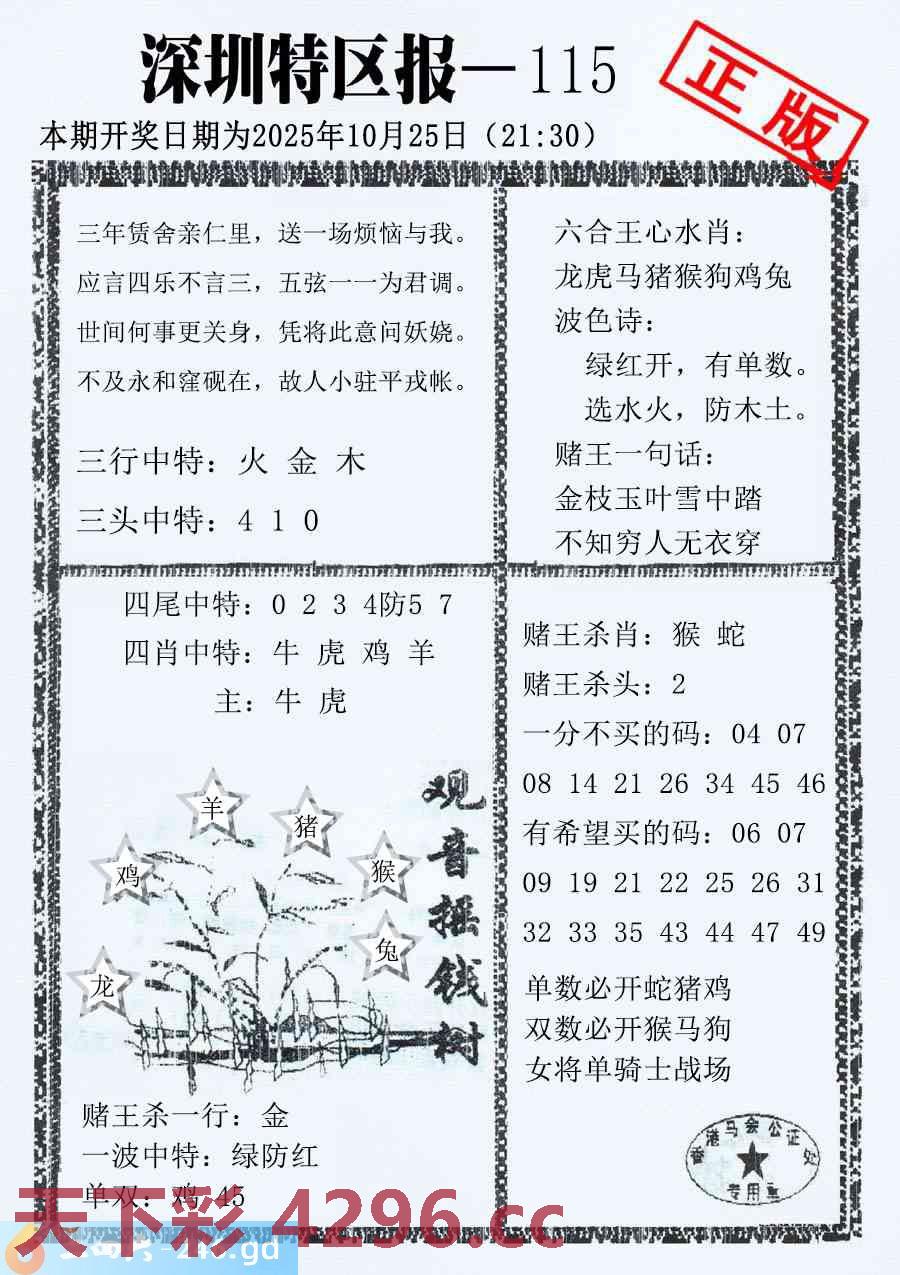 深圳特区报—115
正版
本期开奖日期为2025年10月25日（21:30）
三年赁舍亲仁里，送一场烦恼与我。
应言四乐不言三，五弦一一为君调。
世间何事更关身，凭将此意问妖娆。
不及永和窪砚在，故人小驻平戎帐。
三行中特：火 金 木
三头中特：4 1 0
六合王心水肖：
龙虎马猪猴狗鸡兔
波色诗：
绿红开，有单数。
选水火，防木土。
赌王一句话：
金枝玉叶雪中踏
不知穷人无衣穿
四尾中特：0 2 3 4防5 7
四肖中特：牛 虎 鸡 羊
主：牛 虎
羊
猪
鸡
猴
兔
龙
观音摇钱树
赌王杀一行：金
一波中特：绿防红
单双：鸡 45
赌王杀肖：猴 蛇
赌王杀头：2
一分不买的码：04 07
08 14 21 26 34 45 46
有希望买的码：06 07
09 19 21 22 25 26 31
32 33 35 43 44 47 49
单数必开蛇猪鸡
双数必开猴马狗
女将单骑士战场
香港马会公证处
专用章
天下彩 4296.cc